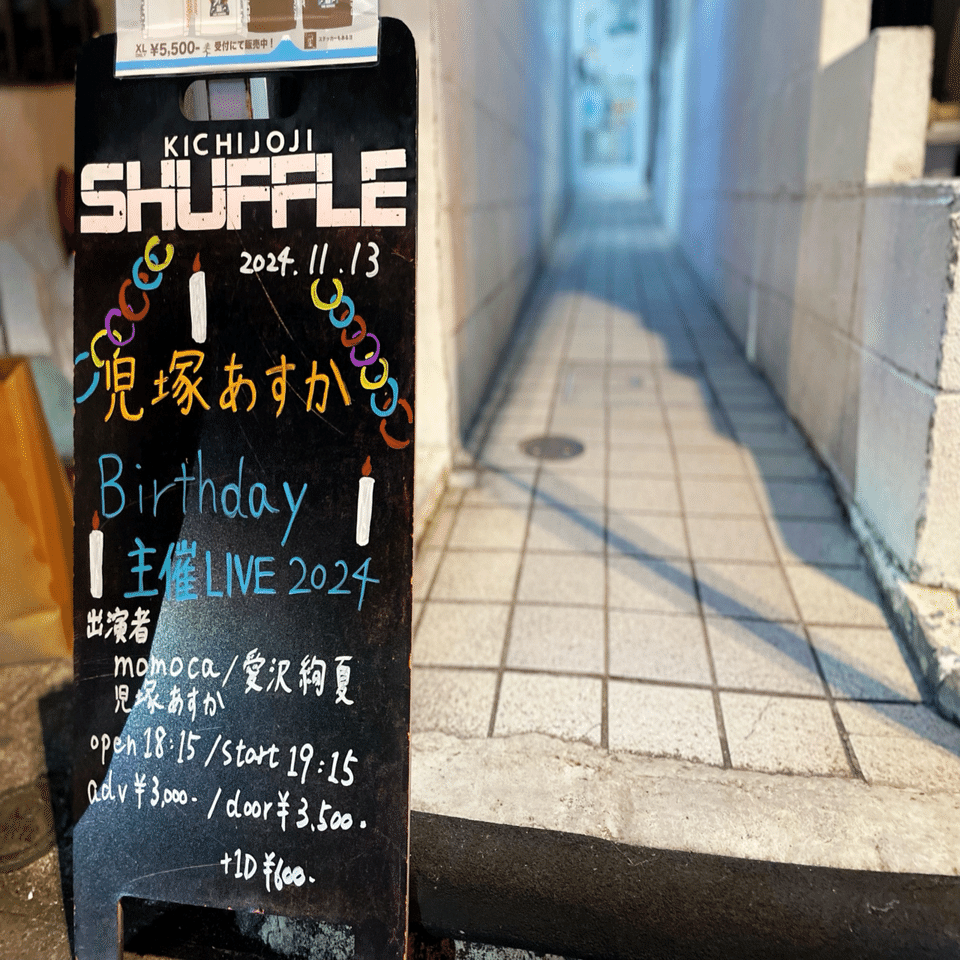 XL ¥5,500- 受付にて販売中！
KICHIJOJI
SHUFFLE
2024.11.13
児塚あすか
Birthday
主催LIVE 2024
出演者
momoca/愛沢絢夏
児塚あすか
open 18:15/start 19:15
adv ¥3,000-/door ¥3,500.
+1D ¥600.